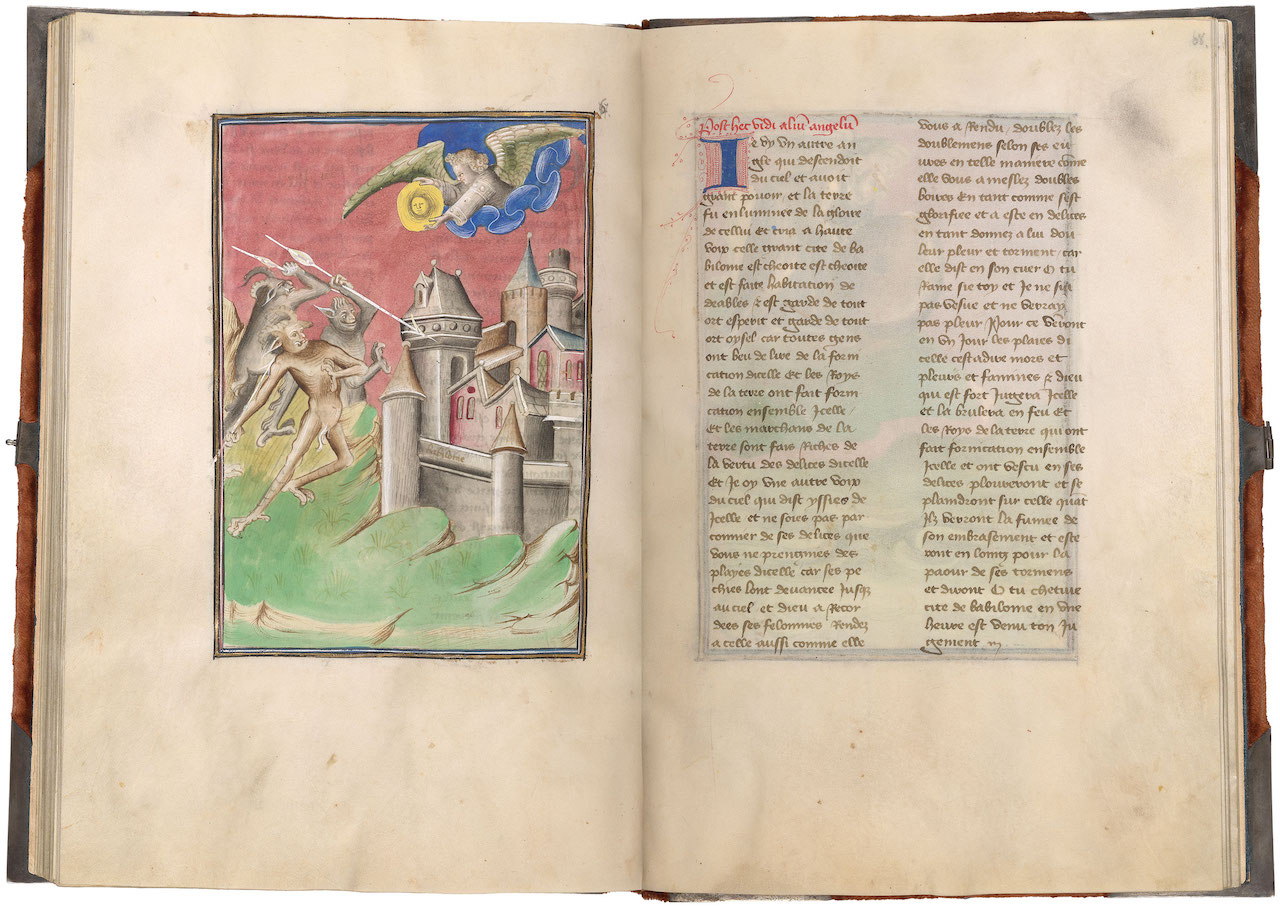 babilone
68.
Post hec vidi aliū angelū
Ie vy vn autre an
gle qui descendoit
du ciel et auoit
grant pouoir et la terre
fu enluminee de la gloire
de celluy et cria a haulte
voix celle grant cite de ba
bilonie est cheoite est cheoite
et est faite habitation de
deables et est garde de tout
ort esperit et garde de tout
ort oysel car toutes gens
ont beu de lire de la forni
cation dicelle Et les Roys
de la terre ont fait forni
cation ensemble Icelle
Et les marchans de la
terre sont fais Riches de
la vertu des delices dicelle
Et Je oy vne autre voix
du ciel qui dist yssies de
Icelle et ne soies pas par
connier de ses delices que
vous ne prengnies des
playes dicelle car ses pe
chies sont deuancee Jusqz
au ciel et dieu a Recor
dees ses felonnies Rendez
a celle aussi comme elle
vous a Rendu / doublez les
doublemens selon ses eu
vres en telle maniere cōme
elle vous a meslez doubles
boires Et Tant comme sest
glorifiee et a este en delices
en tant donnez a lui dou
leur pleur et torment / car
elle dist en son cuer O tu
dame sie toy et Je ne sui
pas vesue et ne verray
pas pleur Pour ce verront
en vn Jour les plaies di
celle cestadire mors et
pleurs et famines et dieu
qui est fort Juggera Icelle
et la brulera en feu Et
les Roys de la terre qui ont
fait fornication ensemble
Icelle et ont vescu en ses
delices ploureront et se
plaindront sur celle quāt
Ilz verront la fumee de
son embrasement et este
ront en loing pour la
paour de ses tormens
et diront O tu chetiue
cite de babilonie en vne
heure est venu ton Ju
gement